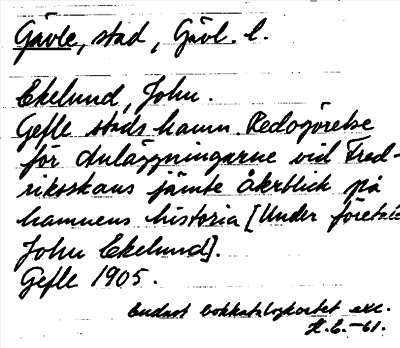 Gävle, stad, Gävl. l.
Ekelund, John.
Gefle stads hamn. Redogörelse
för Anläggningarne vid Fred-
riksskans jämte återblick på
hamnens historia [Under företal:
John Ekelund].
Gefle 1905.
Endast bokkatalogkortet exc.
H. E. -61.